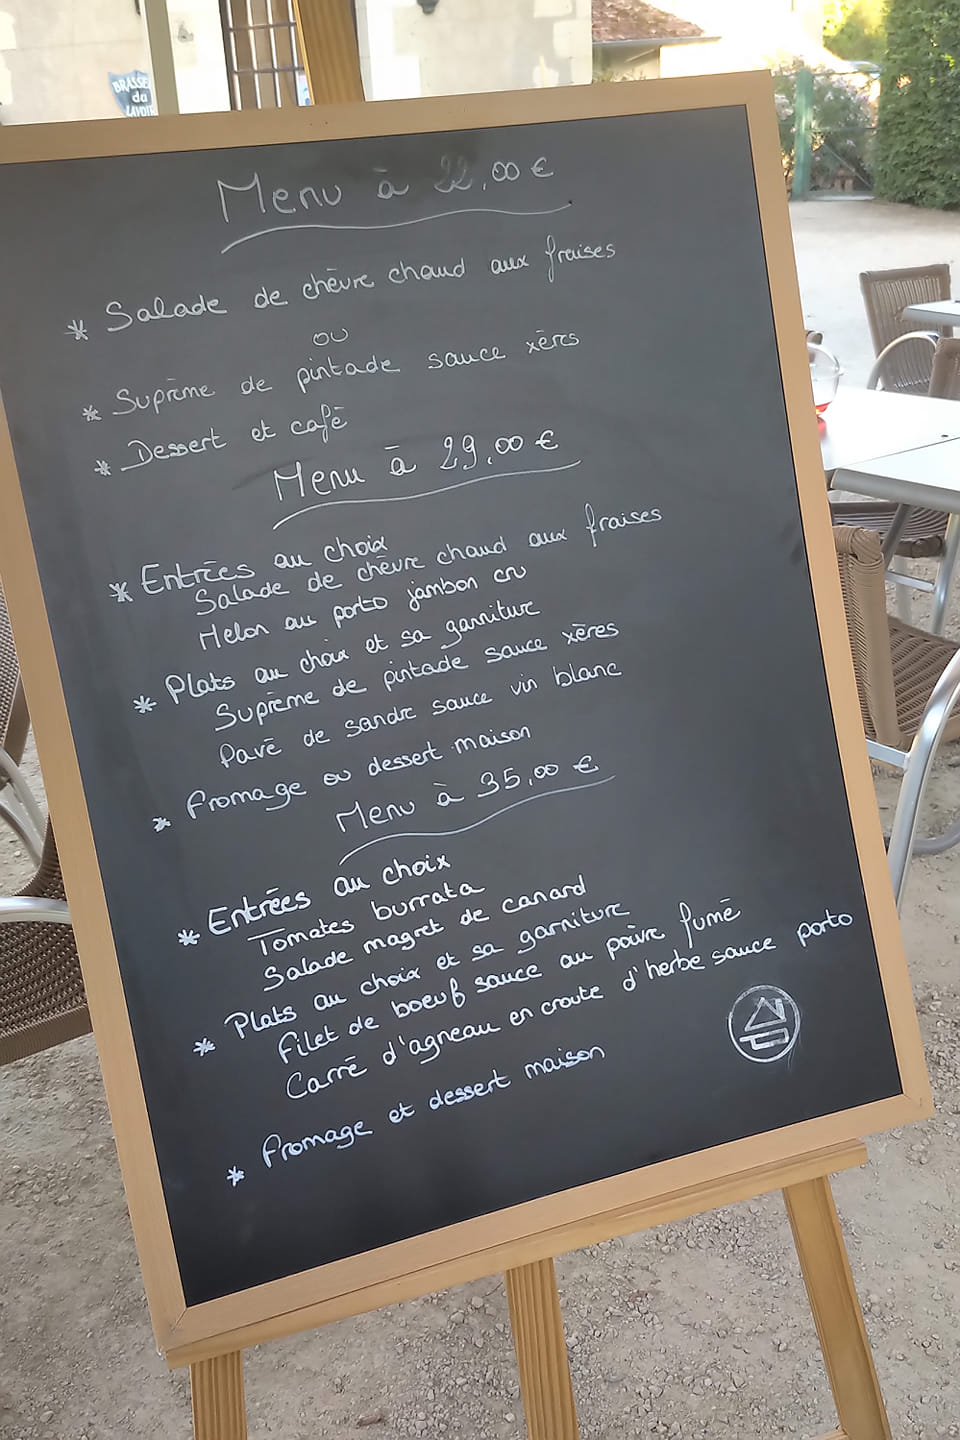 BRASSE
du
LAVOIR
Menu à 22,00 €
* Salade de chèvre chaud aux fraises
ou
* Suprême de pintade sauce xérès
* Dessert et café
Menu à 29,00 €
* Entrées au choix
Salade de chèvre chaud aux fraises
Melon au porto jambon cru
* Plats au choix et sa garniture
Suprême de pintade sauce xérès
Pavé de sandre sauce vin blanc
* Fromage ou dessert maison
Menu à 35,00 €
* Entrées au choix
Tomates burrata
Salade magret de canard
* Plats au choix et sa garniture
Filet de boeuf sauce au poivre fumé
Carré d'agneau en croute d'herbe sauce porto
* Fromage et dessert maison